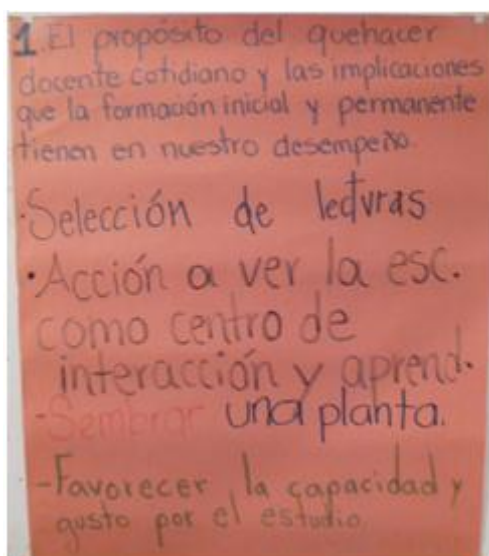 1. El propósito del quehacer
docente cotidiano y las implicaciones
que la formación inicial y permanente
tienen en nuestro desempeño.
·Selección de lecturas
·Acción a ver la esc.
como centro de
interacción y aprend.
-Sembrar una planta.
-Favorecer la capacidad y
gusto por el estudio.